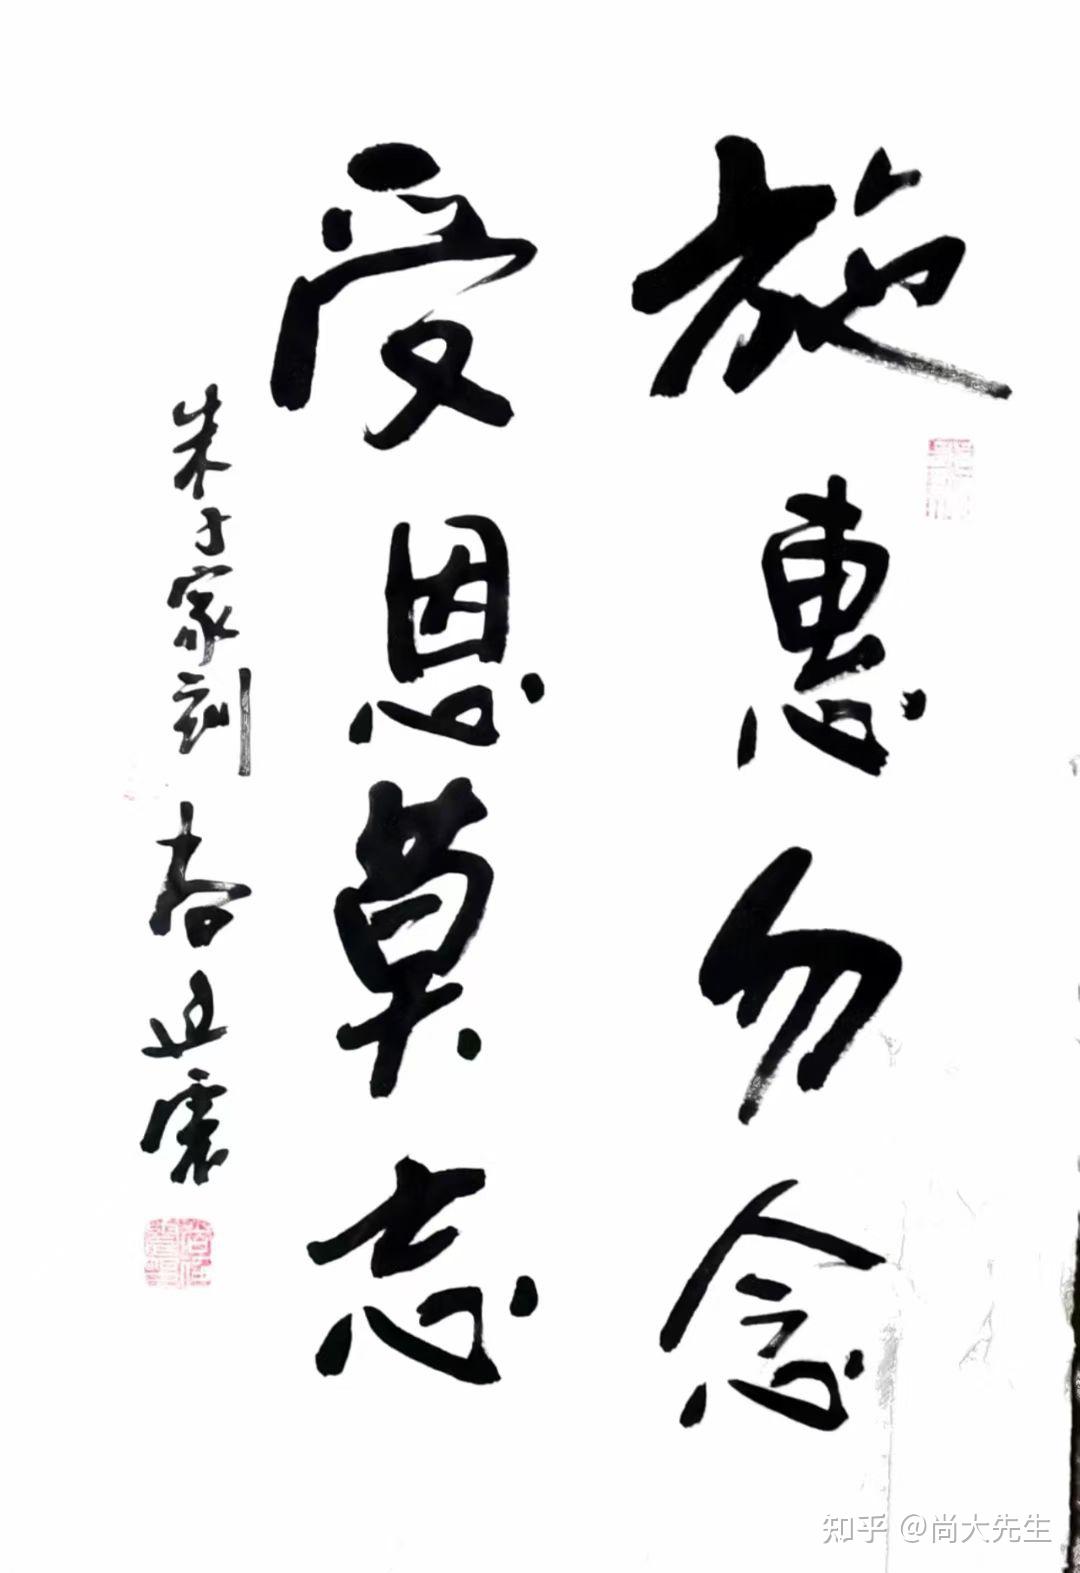 施惠勿念
受恩莫忘
朱子家训
知乎 @尚大先生